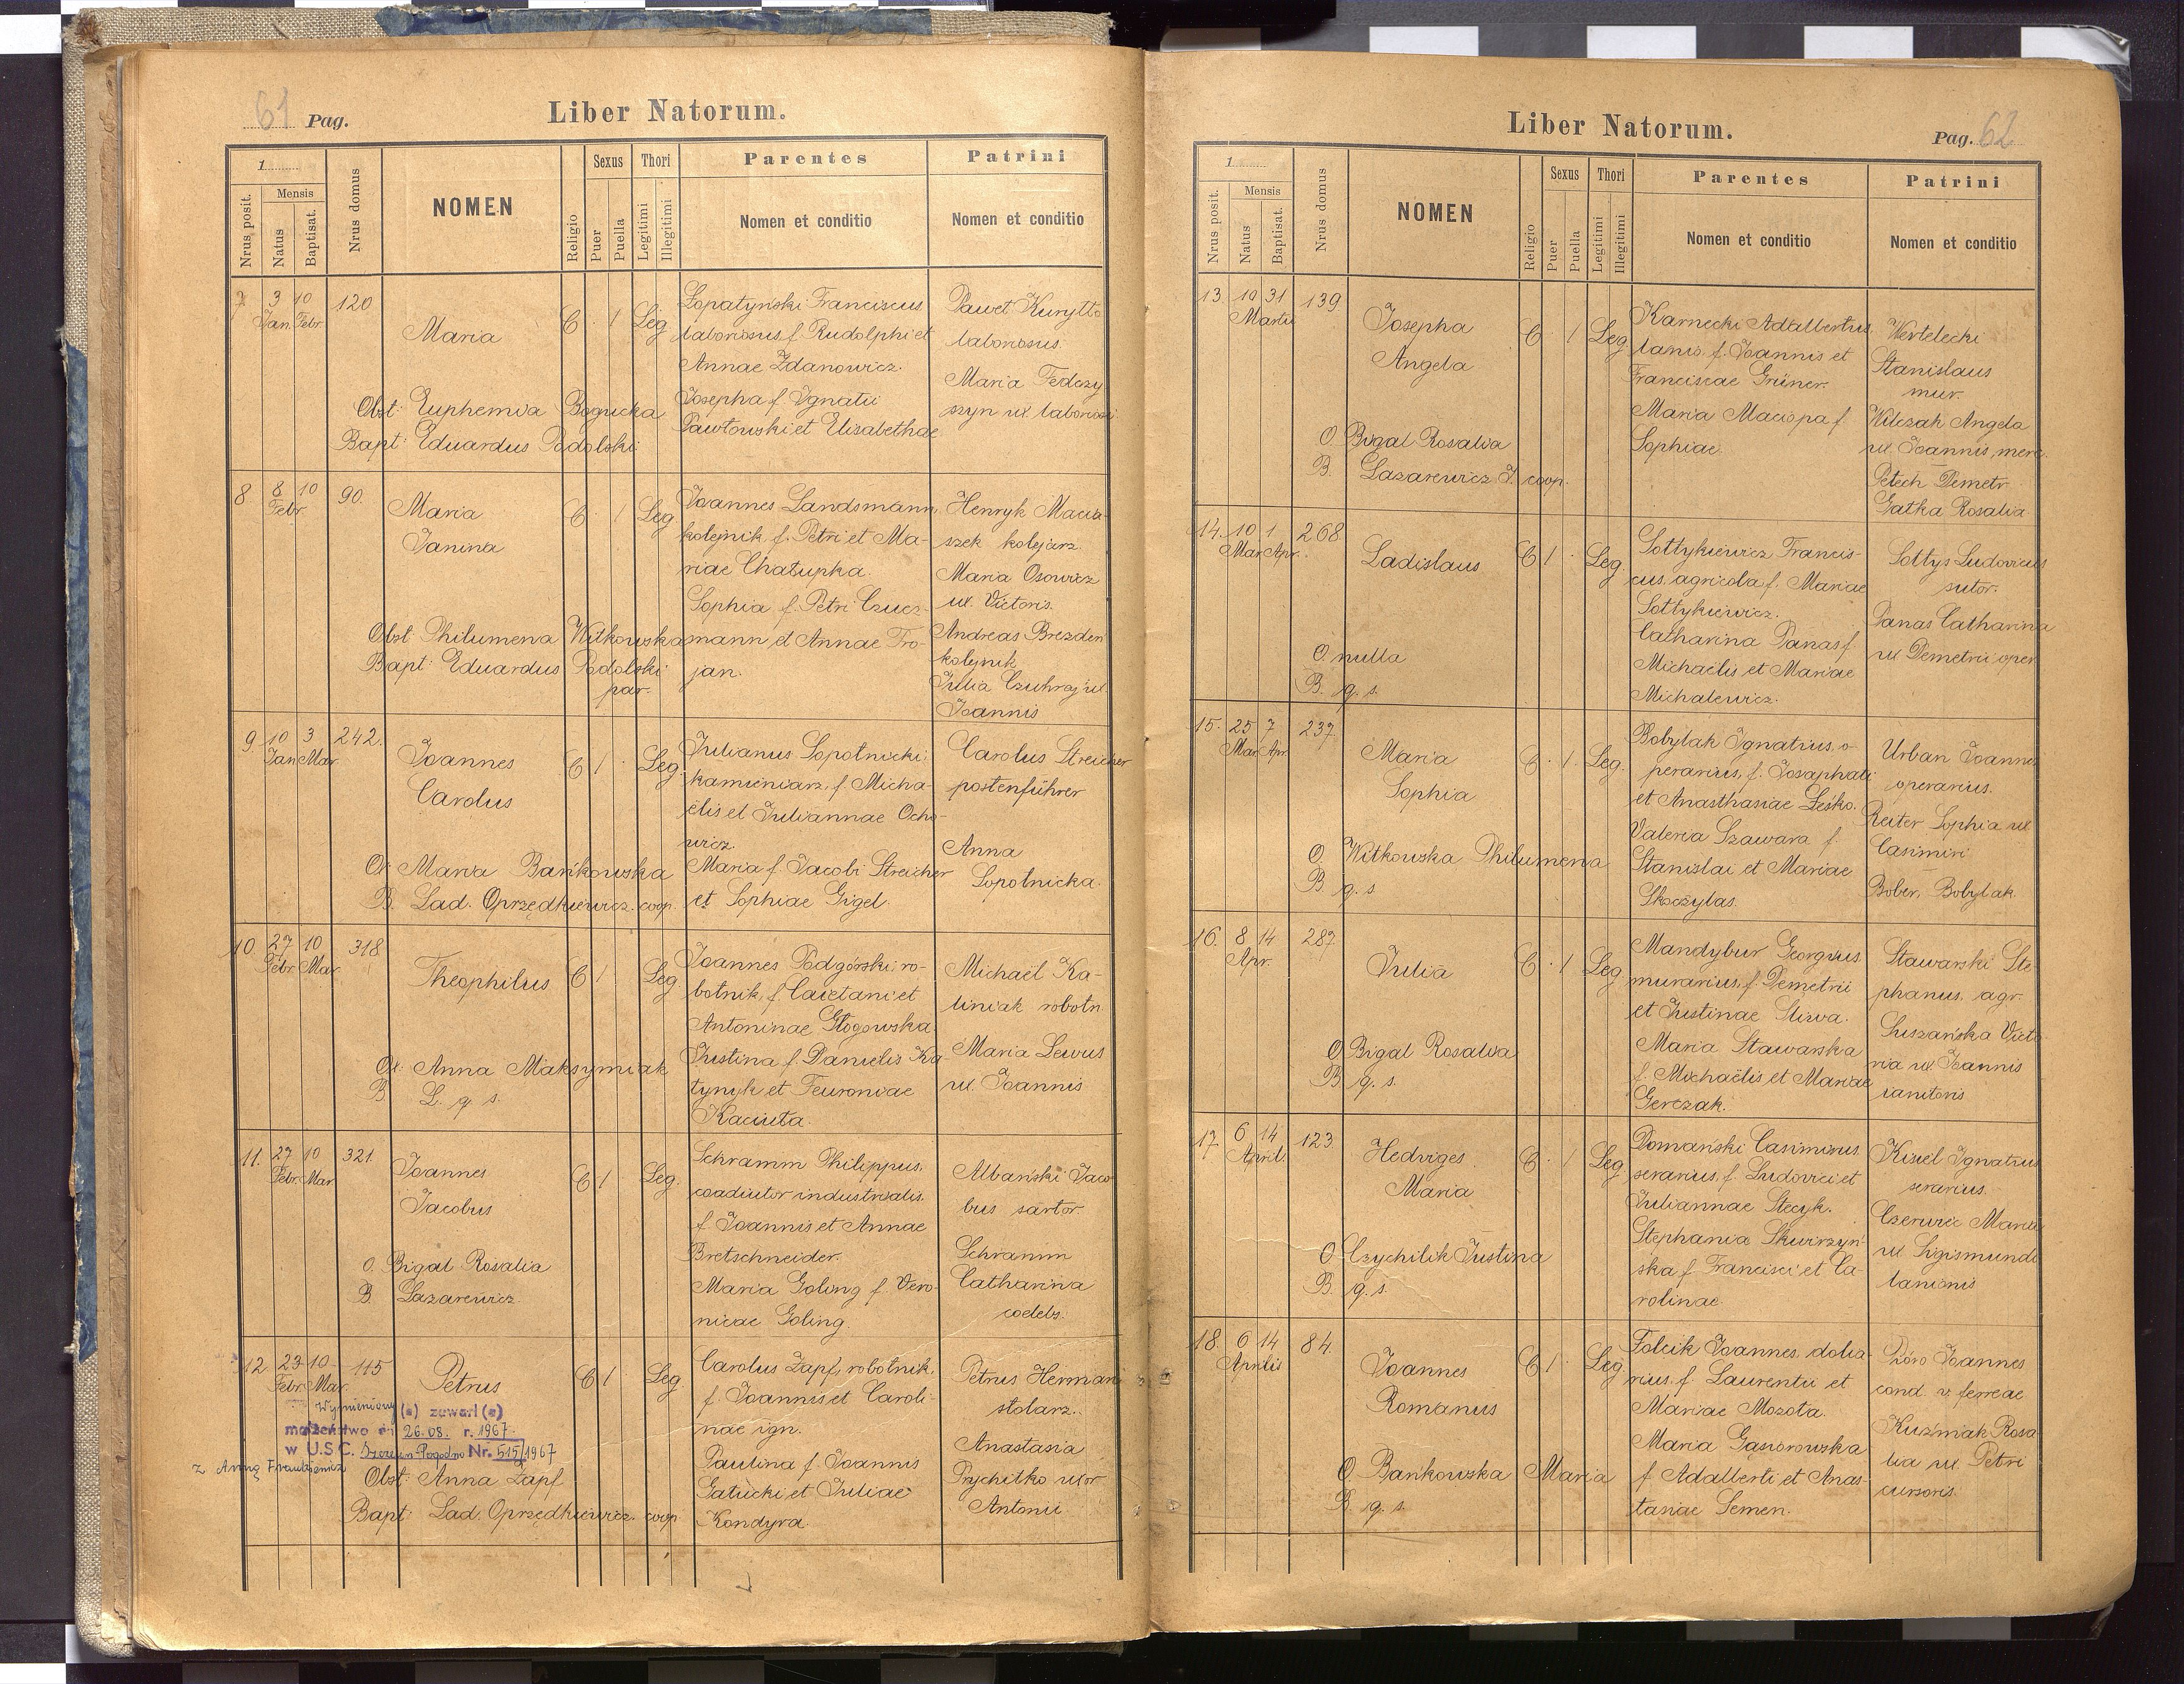 61 Pag.
Liber Natorum.
1
Nrus posit.
Mensis
Natus
Baptisat.
Nrus domus
NOMEN
Religio
Sexus
Puer
Puella
Thori
Legitimi
Illegitimi
Parentes
Nomen et conditio
Patrini
Nomen et conditio
7 3 10 120
Jan. Febr.
Maria
C · 1 Leg.
Obst: Euphemia Bogucka
Bapt: Eduardus Podolski
Łopatyński Franciscus
laboriosus f. Rudolphi et
Annae Zdanowicz.
Josepha f. Ignatii
Pawłowski et Elisabethae
Paweł Kuryłło
laboriosus.
Maria Fedczy
szyn ux laboriosi
8 8 10 90.
Febr.
Maria
Janina
C · 1 Leg
Obst Philumena Witkowska
Bapt: Eduardus Podolski
par.
Joannes Landsmann,
kolejnik f. Petri et Ma-
riae Chałupka.
Sophia f. Petri Czucz-
mann et Annae Tro-
jan.
Henryk Macia-
szek kolejarz.
Maria Osowicz
ux. Victoris.
Andreas Brezden
kolejnik
Julia Czuhraj ux.
Joannis
9 10 3 242.
Jan Mar
Joannes
Carolus
C 1 · Leg.
O: Maria Bańkowska
B. Lad. Oprzędkiewicz. coop.
Julianus Łopotnicki,
kamieniarz, f. Micha-
elis et Juliannae Ocho-
wicz.
Maria f. Jacobi Streicher
et Sophiae Gigel.
Carolus Streicher
postenführer
Anna
Łopotnicka.
10 27 10 318
Febr. Mar.
Theophilus
C 1 Leg.
O: Anna Maksymiak
B L. q. s.
Joannes Podgórski, ro-
botnik, f. Caietani et
Antoninae Głogowska.
Justina f. Danielis Ka-
tynyk et Feuroniae
Kaciuta.
Michaël Ka-
liniak robotn
Maria Lewus
ux. Joannis
11. 27 10 321.
Febr. Mar
Joannes
Jacobus
C 1 Leg.
O. Bigal Rosalia
B. Lazarewicz.
Schramm Philippus,
coadiutor industrialis,
f. Joannis et Annae
Bretschneider.
Maria Goling f. Vero-
nicae Goling.
Albański Jaco
bus sartor.
Schramm
Catharina
coelebs.
12. 23 10 115
Febr. Mar.
Petrus
C 1 Leg.
Wymieniony (a) zawarł (a)
małżeństwo dn 26.08. r. 1967.
w U.S.C. Szczecin-Pogodno Nr. 515/1967
z Anną
Obst: Anna Zapf
Bapt: Lad. Oprzędkiewicz. coop
Carolus Zapf, robotnik,
f. Joannis et Caroli-
nae ign.
Paulina f. Joannis
Gatucki et Juliae
Kondyra.
Petrus Herman
stolarz.
Anastasia
Przychitko uxor
Antonii
Liber Natorum.
Pag. 62
1
Nrus posit.
Mensis
Natus
Baptisat.
Nrus domus
NOMEN
Religio
Sexus
Puer
Puella
Thori
Legitimi
Illegitimi
Parentes
Nomen et conditio
Patrini
Nomen et conditio
13. 19 31 139.
Martii
Josepha
Angela
C · 1 Leg.
O. Bigal Rosalia
B. Lazarewicz J. coop.
Karnecki Adalbertus,
lanio, f. Joannis et
Franciscae Grüner.
Maria Maciopa f.
Sophiae.
Wertelecki
Stanislaus
mur.
Witczak Angela
ux. Joannis, merc.
Petech Demetr.
Gatka Rosalia
14. 10 1. 268
Mar Apr.
Ladislaus
C 1 · Leg.
O. nulla
B. q. s.
Sołtykiewicz Francis-
cus, agricola f. Mariae
Sołtykiewicz.
Catharina Panas f.
Michaëlis et Mariae
Michalewicz.
Sołtys Ludovicus
sutor.
Panas Catharina
ux Demetrii oper
15. 25 7 237
Mar Apr.
Maria
Sophia
C · 1. Leg.
O. Witkowska Philumena
B. q. s.
Bobylak Ignatius, o-
perarius, f. Josaphati
et Anasthasiae Leśko.
Valeria Szawara f.
Stanislai et Mariae
Skoczylas.
Urban Joannes
operarius.
Reiter Sophia ux
Casimiri
Bober, Bobylak.
16. 8 14 287.
Apr.
Julia
C · 1 Leg.
O Bigal Rosalia
B. q. s.
Mandybur Georgius
murarius, f. Demetrii
et Justinae Sliwa.
Maria Stawarska
f. Michaëlis et Mariae
Gerczak.
Stawarski Ste
phanus, agr.
Suszańska Victo
ria ux Joannis
ianitoris
17. 6 14 123
April.
Hedviges
Maria
C · 1 Leg.
O. Czychilik Justina
B. q. s.
Domański Casimirus
serarius, f. Ludovici et
Juliannae Stecyk.
Stephania Skwirzyń-
ska f. Francisci et Ca-
rolinae.
Kisiel Ignatius
serarius.
Czerwic Maria
ux Sigismundi
lanionis
18. 6 14 84.
Aprilis
Joannes
Romanus
C 1 · Leg.
O. Bańkowska Maria
B. q. s.
Folcik Joannes, dolia-
rius, f. Laurentii et
Mariae Mozota.
Maria Gąsiorowska
f. Adalberti et Anas-
tasiae Semen.
Dóro Joannes
cond. v. ferreae
Kuźmiak Rosa
lia ux. Petri
cursoris